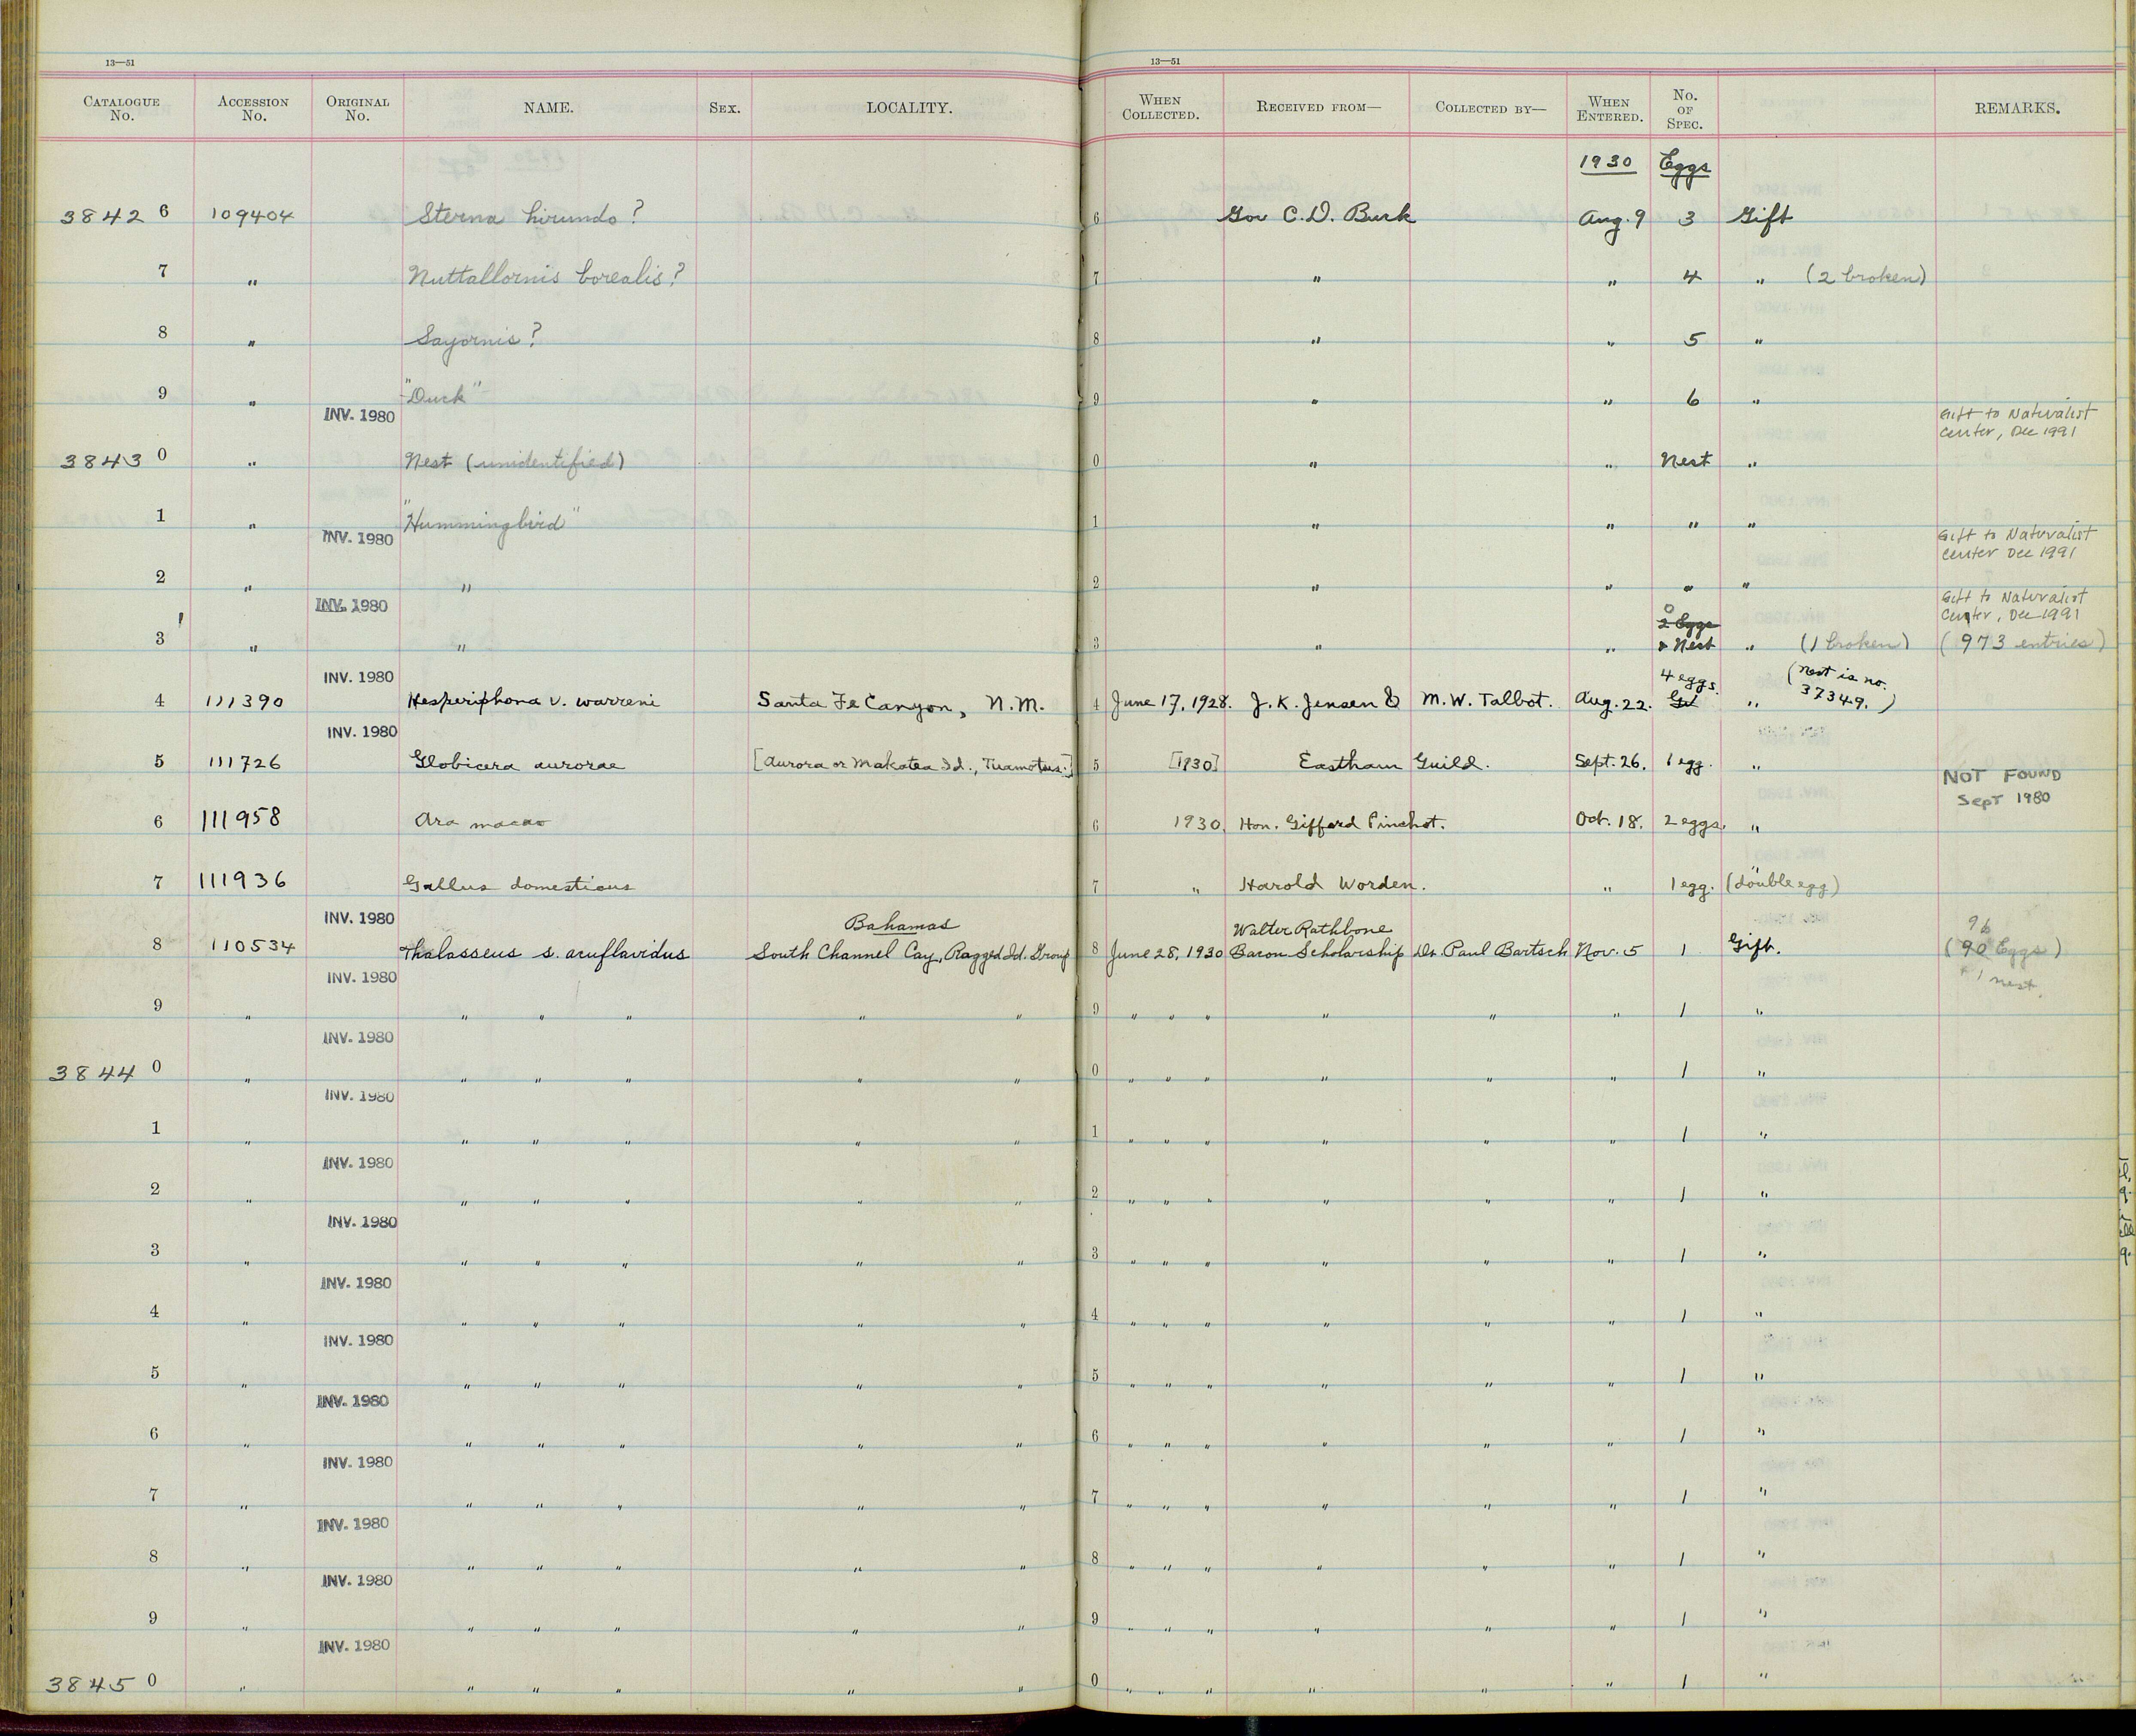 13—51 13—51
CATALOGUE No. ACCESSION No. ORIGINAL No. NAME. SEX. LOCALITY. WHEN COLLECTED. RECEIVED FROM— COLLECTED BY— WHEN ENTERED. No. OF SPEC. REMARKS.
1930 Eggs
3842 6 109404 Sterna hirundo? 6 Gov C. D. Burk Aug. 9 3 Gift
7 " Nuttallornis borealis? 7 " " 4 " (2 broken)
8 " Sayornis? 8 " " 5 "
9 " "Duck" 9 " " 6 "
INV. 1980 Gift to Naturalist
Center, Dec 1991
3843 0 " Nest (unidentified) 0 " " Nest "
1 " "Hummingbird" 1 " " " "
INV. 1980 Gift to Naturalist
Center Dec 1991
2 " " 2 " " " "
INV. 1980 Gift to Naturalist
Center, Dec 1991
0
2 Eggs
3 " " 3 " " & Nest " (1 broken) (973 entries)
INV. 1980 4 eggs. (Nest is no.
4 111390 Hesperiphona v. warreni Santa Fe Canyon, N.M. 4 June 17, 1928. J. K. Jensen & M. W. Talbot. Aug. 22. " 37349.)
INV. 1980
5 111726 Globicera aurorae [Aurora or Makatea Id., Tuamotus.] 5 [1930] Eastham Guild. Sept. 26. 1 egg. "
NOT FOUND
Sept 1980
6 111958 Ara macao 6 1930. Hon. Gifford Pinchot. Oct. 18. 2 eggs. "
7 111936 Gallus domesticus 7 " Harold Worden. " 1 egg. " (double egg)
INV. 1980 Bahamas Walter Rathbone 96
8 110534 Thalasseus s. acuflavidus South Channel Cay, Ragged Id. Group 8 June 28, 1930 Bacon Scholarship Dr. Paul Bartsch Nov. 5 1 Gift. (90 Eggs)
INV. 1980 + 1 nest.
9 " " " " " " 9 " " " " " " 1 "
INV. 1980
3844 0 " " " " " " 0 " " " " " " 1 "
INV. 1980
1 " " " " " " 1 " " " " " " 1 "
INV. 1980
2 " " " " " " 2 " " " " " " 1 "
INV. 1980
3 " " " " " " 3 " " " " " " 1 "
INV. 1980
4 " " " " " " 4 " " " " " " 1 "
INV. 1980
5 " " " " " " 5 " " " " " " 1 "
INV. 1980
6 " " " " " " 6 " " " " " " 1 "
INV. 1980
7 " " " " " " 7 " " " " " " 1 "
INV. 1980
8 " " " " " " 8 " " " " " " 1 "
INV. 1980
9 " " " " " " 9 " " " " " " 1 "
INV. 1980
3845 0 " " " " " " 0 " " " " " " 1 "